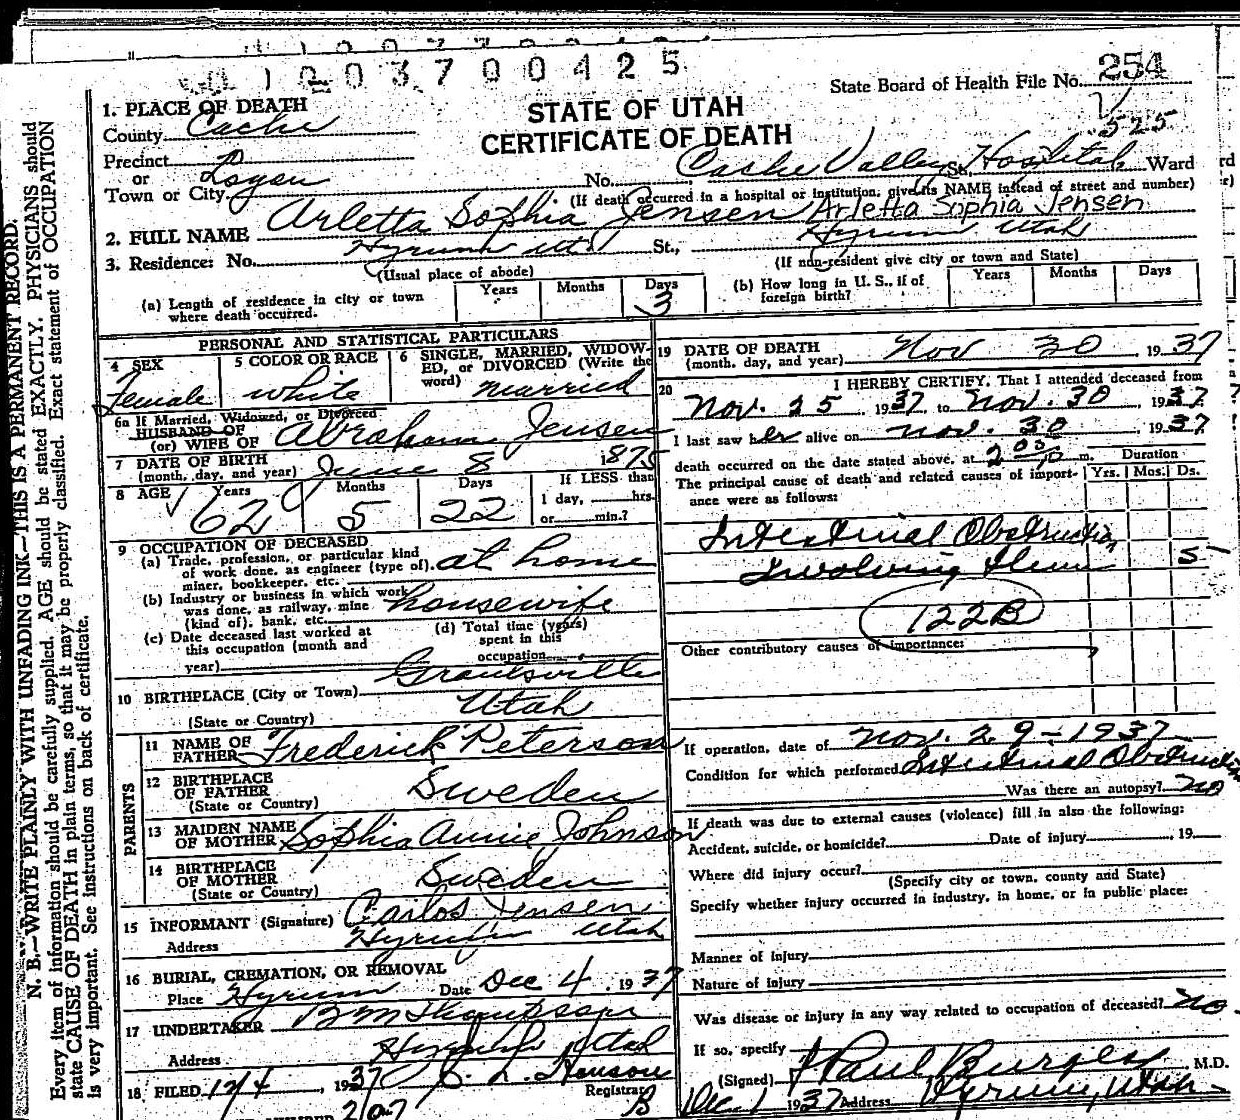 1003700425
State Board of Health File No. 254
525
STATE OF UTAH
CERTIFICATE OF DEATH
1. PLACE OF DEATH
County Cache
Precinct
or
Town or City Logan
No. Cache Valley St. Hospital Ward
(If death occurred in a hospital or institution, give its NAME instead of street and number)
2. FULL NAME Arletta Sophia Jensen Arletta Sophia Jensen
3. Residence: No. Hyrum Ut. St., Hyrum Utah
(Usual place of abode) (If non-resident give city or town and State)
(a) Length of residence in city or town where death occurred. Years Months Days 3
(b) How long in U. S., if of foreign birth? Years Months Days
PERSONAL AND STATISTICAL PARTICULARS
4 SEX Female
5 COLOR OR RACE white
6 SINGLE, MARRIED, WIDOWED, or DIVORCED (Write the word) married
6a If Married, Widowed, or Divorced
HUSBAND OF
(or) WIFE OF Abraham Jensen
7 DATE OF BIRTH
(month, day, and year) June 8 1875
8 AGE Years 62 Months 5 Days 22 If LESS than
1 day, hrs.
or min.?
9 OCCUPATION OF DECEASED
(a) Trade, profession, or particular kind
of work done, as engineer (type of), at home
miner, bookkeeper, etc.
(b) Industry or business in which work
was done, as railway, mine housewife
(kind of), bank, etc.
(c) Date deceased last worked at
this occupation (month and
year)
(d) Total time (years)
spent in this
occupation
10 BIRTHPLACE (City or Town) Grantsville
(State or Country) Utah
PARENTS
11 NAME OF
FATHER Frederick Peterson
12 BIRTHPLACE
OF FATHER Sweden
(State or Country)
13 MAIDEN NAME
OF MOTHER Sophia Annie Johnson
14 BIRTHPLACE
OF MOTHER Sweden
(State or Country)
15 INFORMANT (Signature) Carlos Jensen
Address Hyrum Utah
16 BURIAL, CREMATION, OR REMOVAL
Place Hyrum Date Dec 4, 1937
17 UNDERTAKER B M Thompson
Address Hyrum Utah
18 FILED 12/4, 1937 Hanson
Registrar
19 DATE OF DEATH
(month, day, and year) Nov 30 1937
20 I HEREBY CERTIFY, That I attended deceased from
Nov. 25 1937 to Nov. 30, 1937
I last saw her alive on Nov. 30 1937
death occurred on the date stated above, at 2 00 p m. Duration
The principal cause of death and related causes of importance were as follows: Yrs. Mos. Ds.
Intestinal Obstruction
Involving Ileum 5
122B
Other contributory causes of importance:
If operation, date of Nov. 29-1937
Condition for which performed Intestinal Obstruction
Was there an autopsy? no
If death was due to external causes (violence) fill in also the following:
Accident, suicide, or homicide? Date of injury , 19
Where did injury occur?
(Specify city or town, county and State)
Specify whether injury occurred in industry, in home, or in public place:
Manner of injury
Nature of injury
Was disease or injury in any way related to occupation of deceased? no
If so, specify
(Signed) Paul Burgess M.D.
Dec 1 1937 Address Hyrum, Utah
N. B.—WRITE PLAINLY WITH UNFADING INK—THIS IS A PERMANENT RECORD.
Every item of information should be carefully supplied. AGE should be stated EXACTLY. PHYSICIANS should
state CAUSE OF DEATH in plain terms, so that it may be properly classified. Exact statement of OCCUPATION
is very important. See instructions on back of certificate.